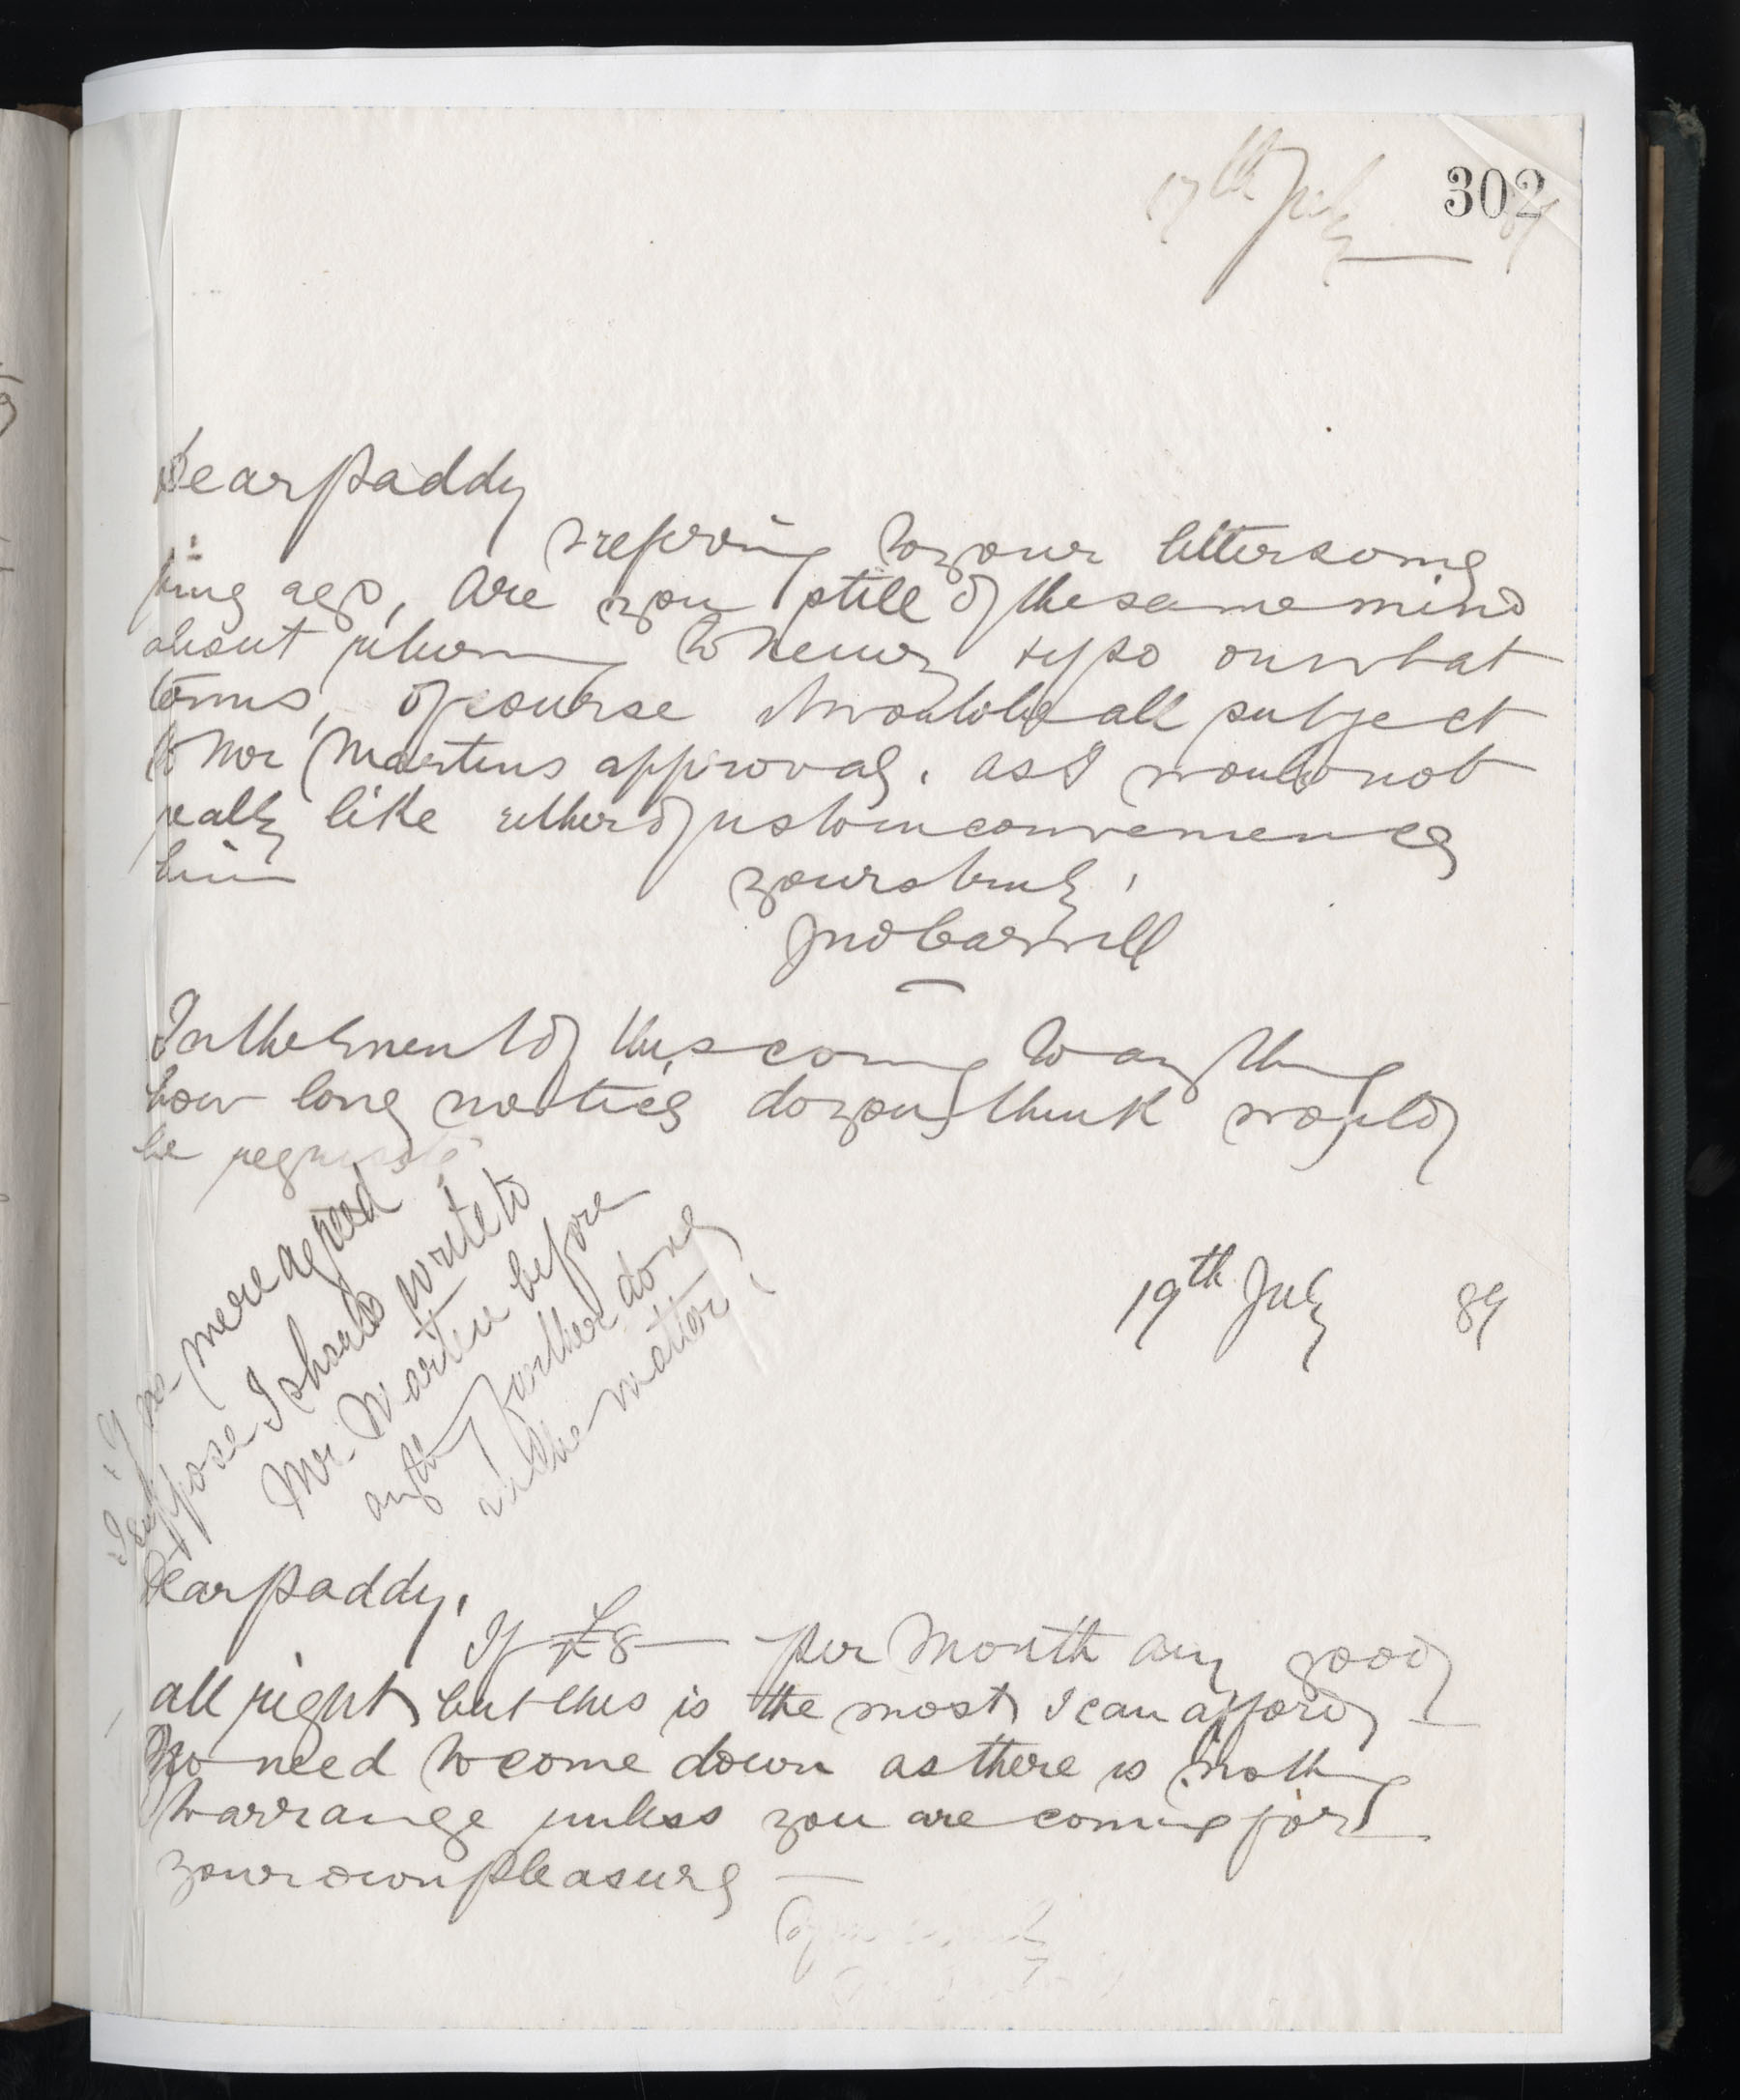 17th July 89
302
Dear Paddy
Refering to your letter some
time ago, Are you still of the same mind
about returning to Kenny & if so on what
terms, of course it would be all subject
to Mr Martins approval. as I would not
really like either of us to inconvenience
him
yours truly,
Jno Carwill
In the Event of this coming to anything
how long notice do you think would
be required
if we were agreed
I suppose I should write to
Mr. Martin before
anything further done
in the matter.
19th July 89
Dear Paddy,
If £8 — per Month any good
all right, but this is the most I can afford —
No need to come down as there is nothing
to arrange unless you are coming for
your own pleasure —